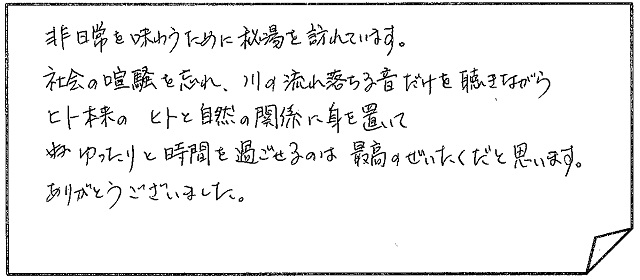 非日常を味わうために秘湯を訪れています。
社会の喧騒を忘れ、川の流れ落ちる音だけを聴きながら
ヒト本来の ヒトと自然の関係に身を置いて
ゆったりと時間を過ごせるのは 最高のぜいたくだと思います。
ありがとうございました。